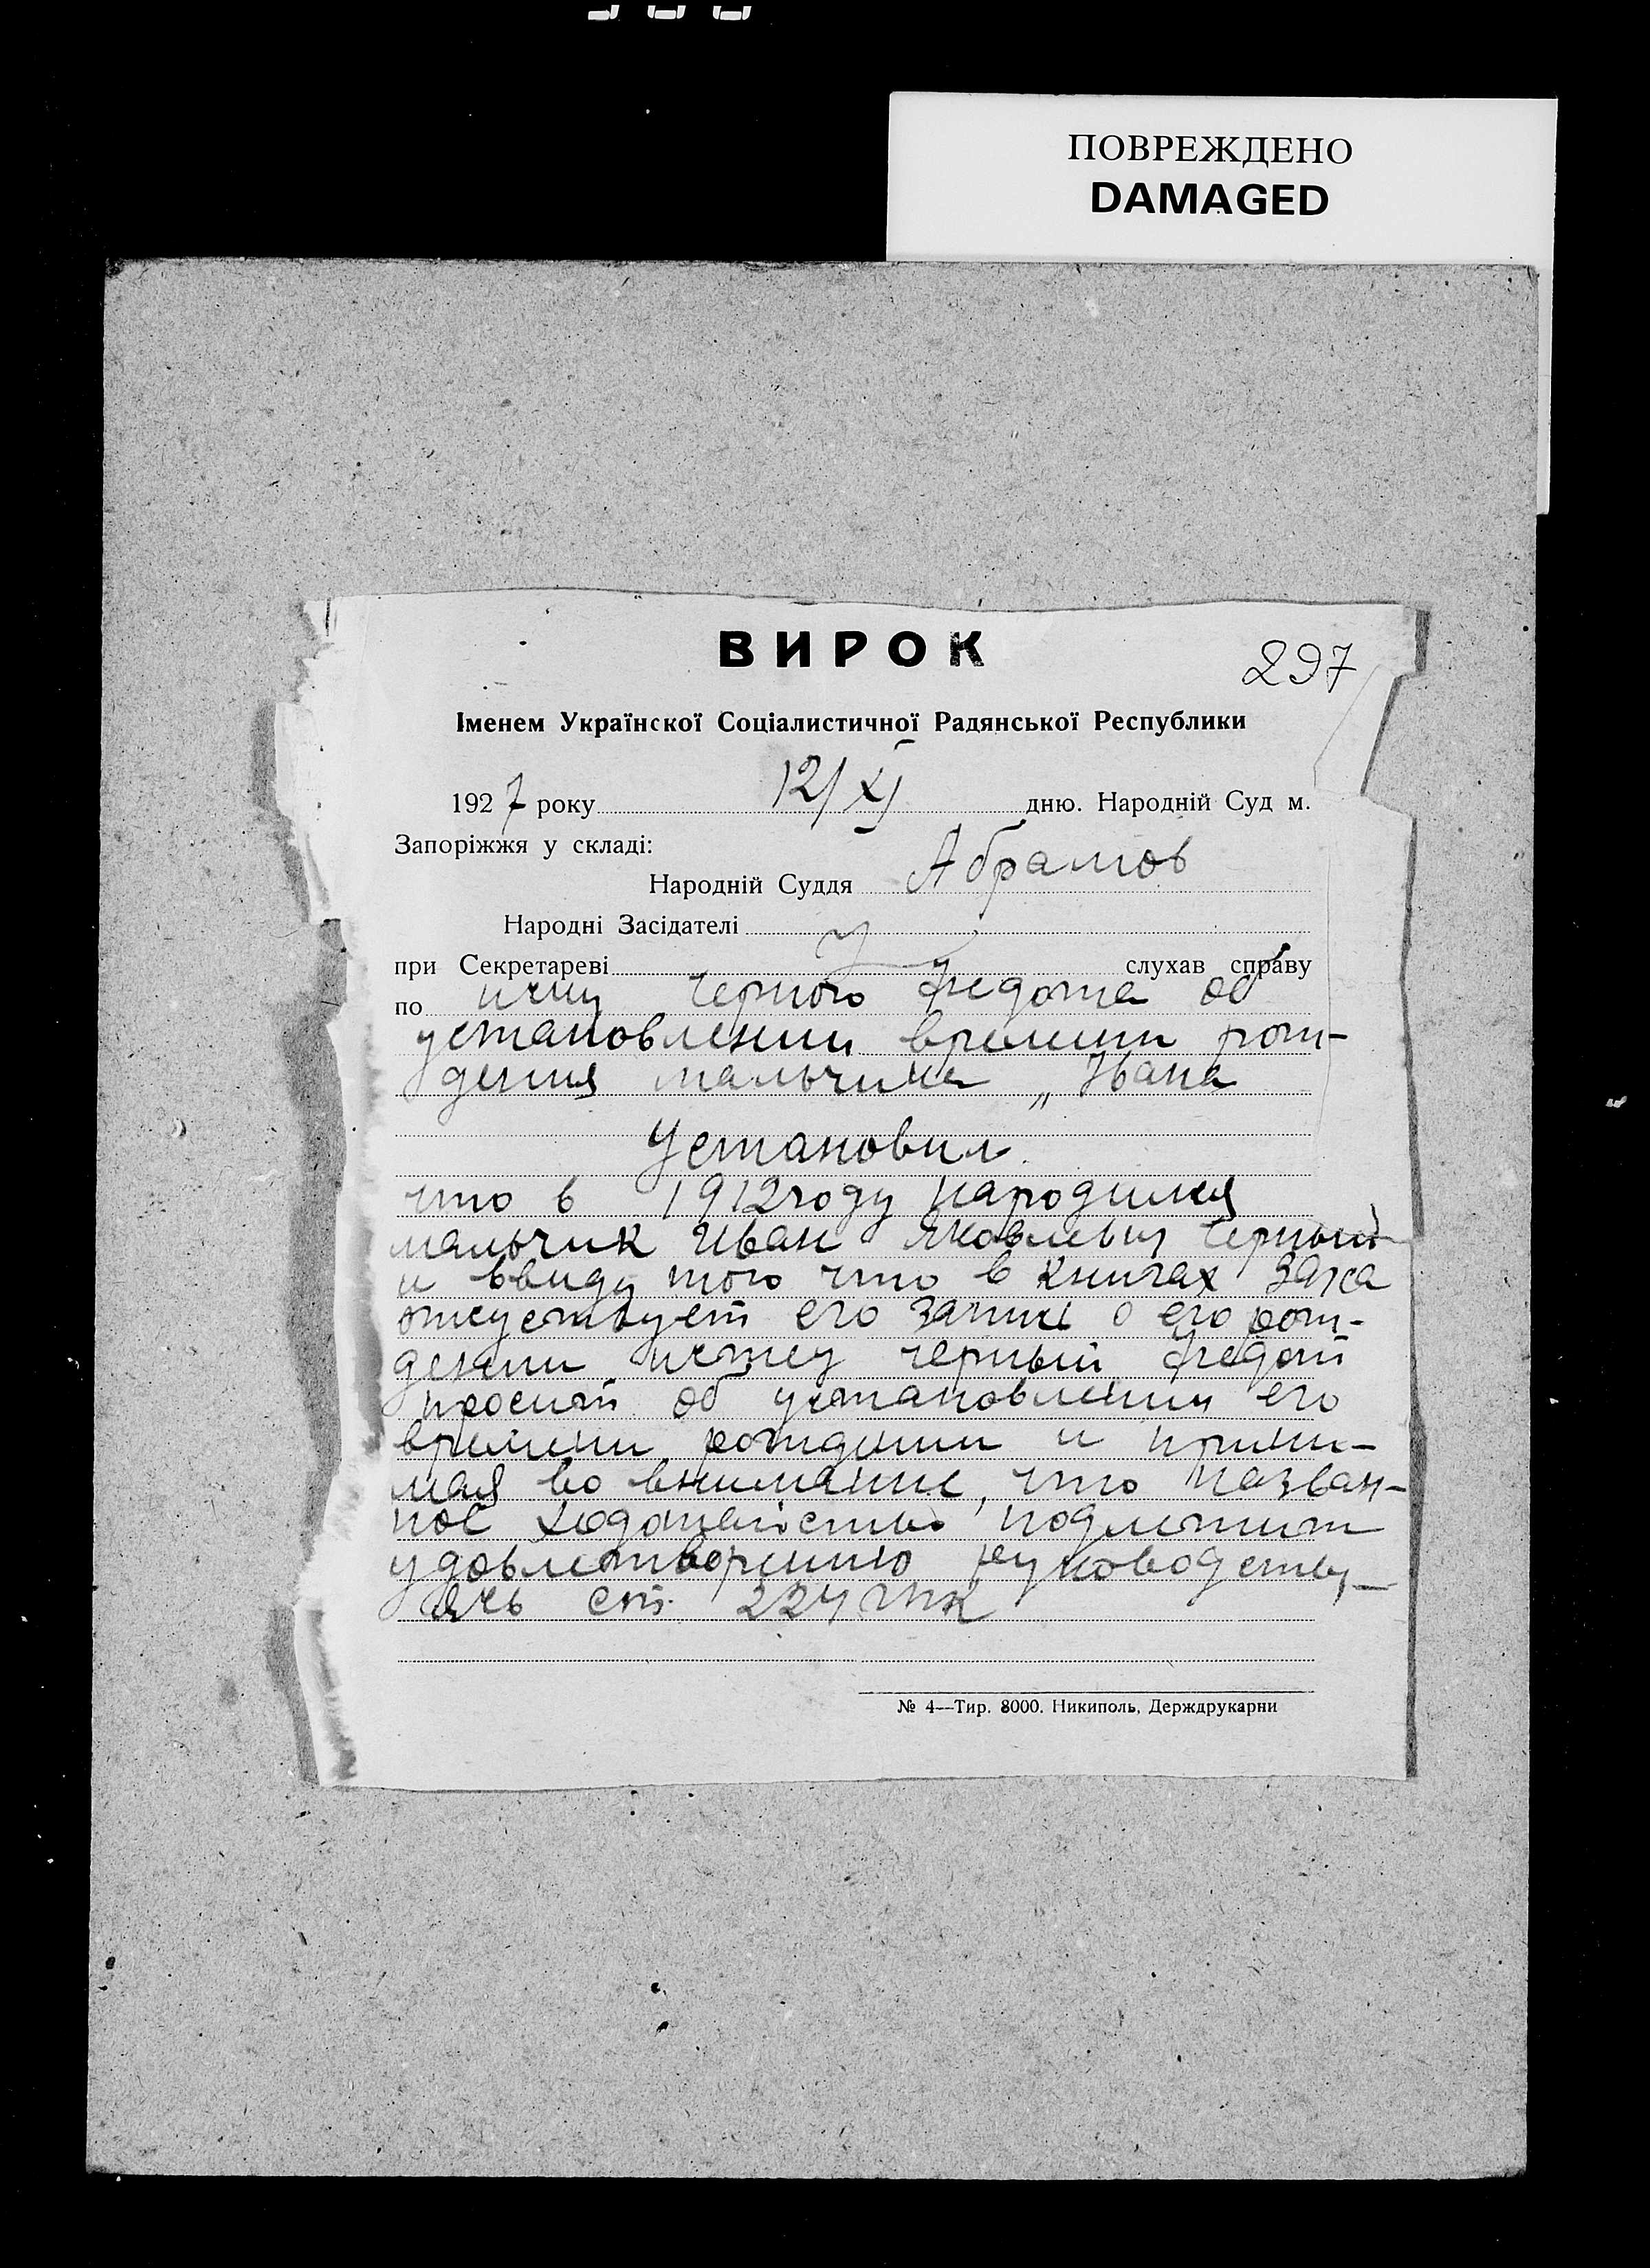 ПОВРЕЖДЕНО
DAMAGED
ВИРОК
297
Іменем Українскої Соціалистичної Радянської Республики
1927 року 12/XI дню. Народній Суд м.
Запоріжжя у складі:
Народній Суддя Абрамов
Народні Засідателі
при Секретареві слухав справу
по иску Черного Федота об
установлении времени рож-
дения мальчика „Ивана
Установил
что в 1912 году народился
мальчик Иван Яковлевич Черный
и ввиду того что в книгах Загса
отсуствует его запис о его рож-
дении истец черный Федот
просит об установлении его
времени рождении и прини-
мая во внимание, что назван-
ное ходотайство подлежит
удовлетворению руководству-
ясь ст. ГПК
№ 4—Тир. 8000. Никиполь, Держдрукарни